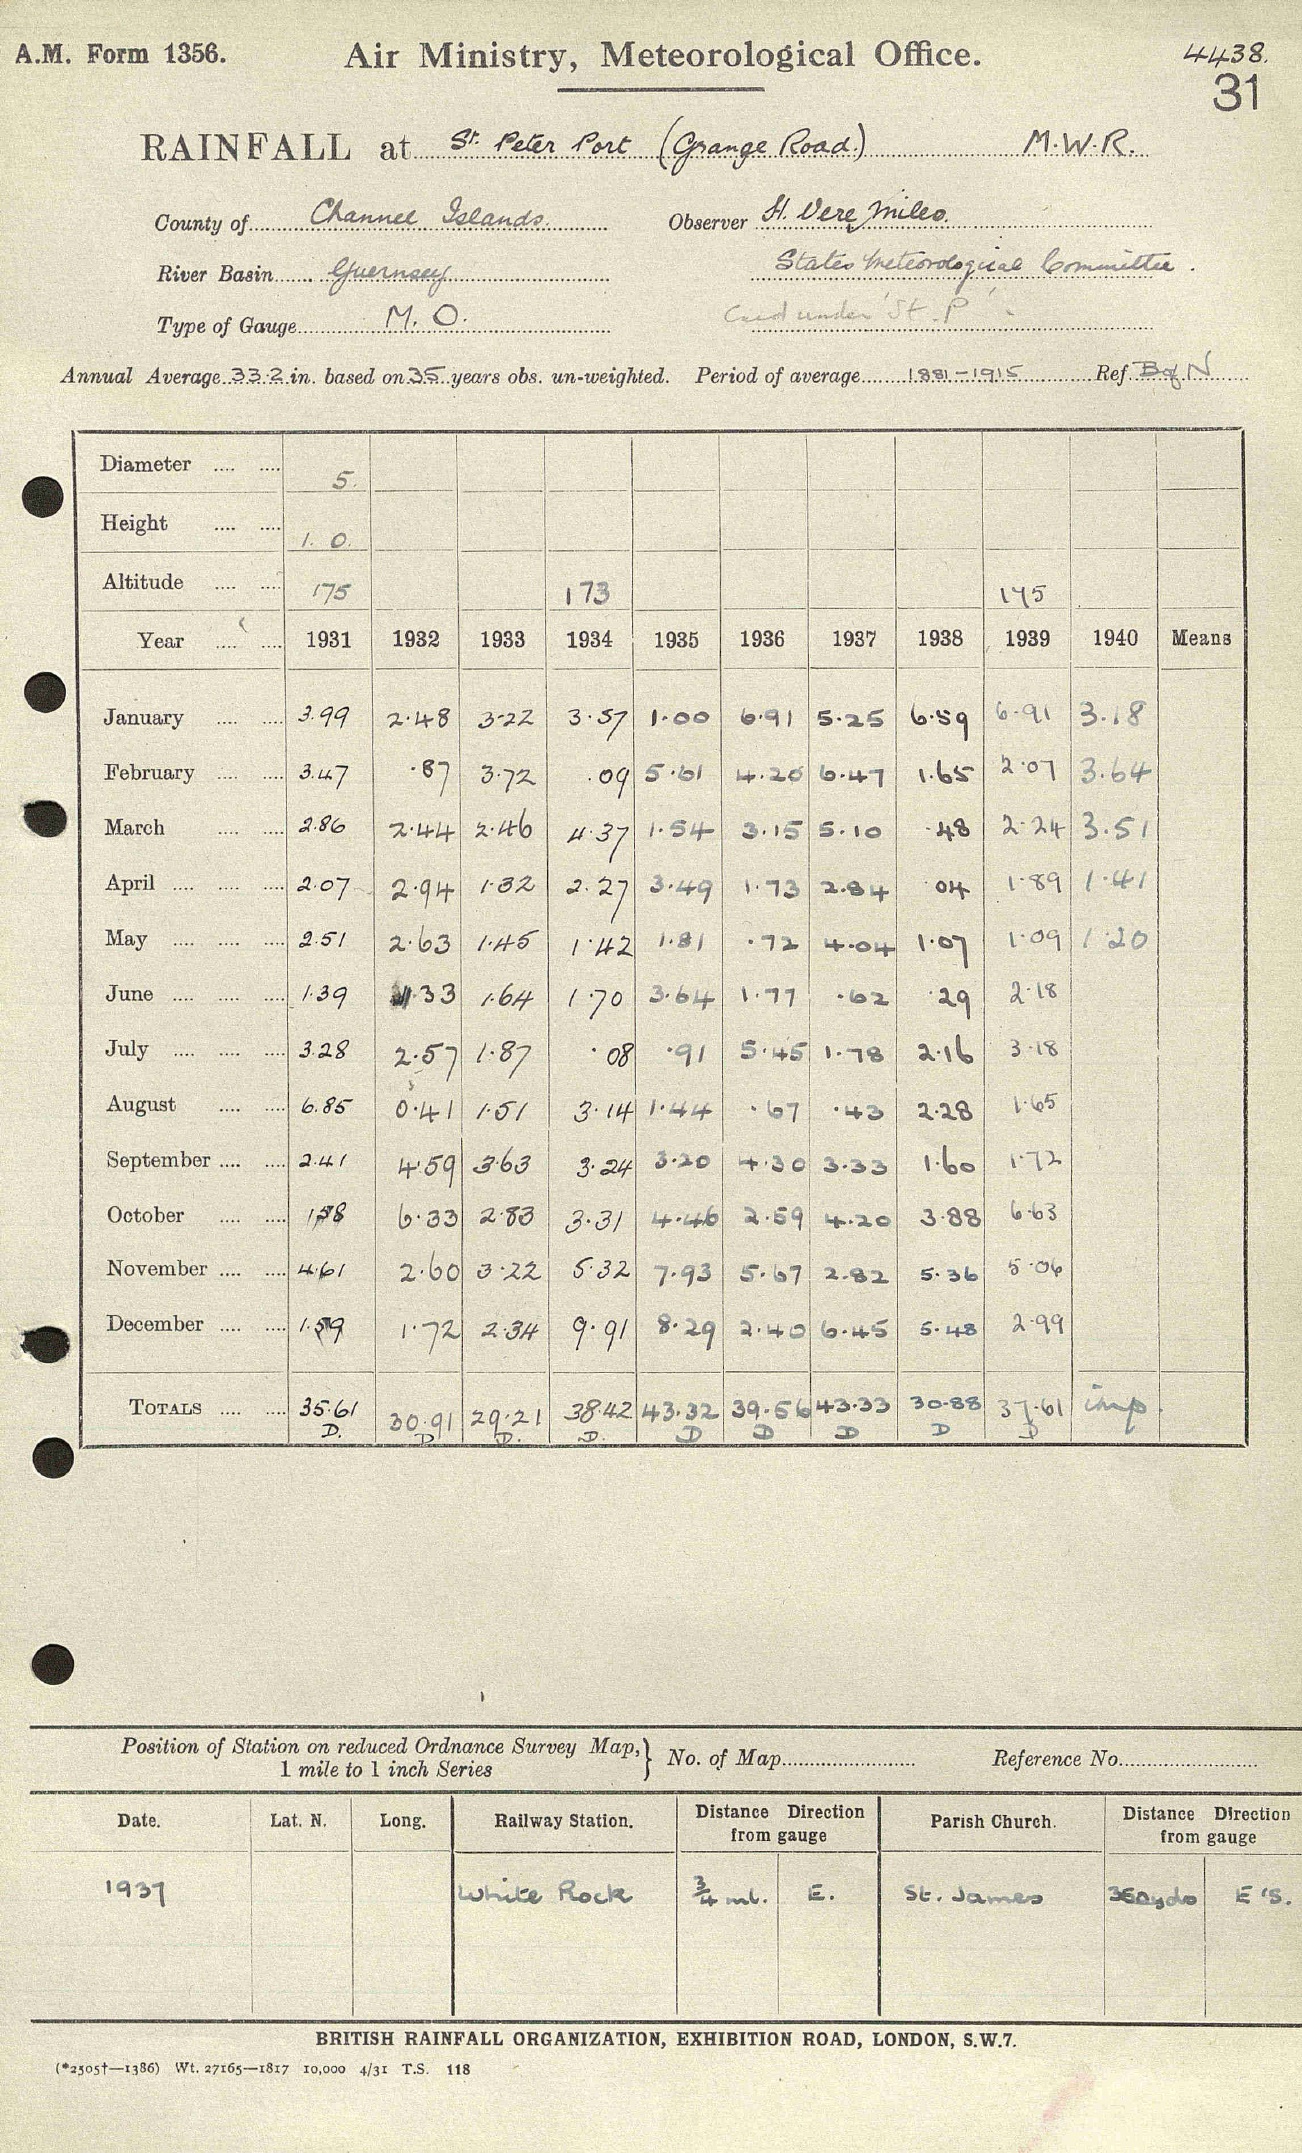 A.M. Form 1356. Air Ministry, Meteorological Office. 4438.
31
RAINFALL at St. Peter Port (Grange Road.) M.W.R.
County of Channel Islands. Observer H. Vere Miles.
River Basin Guernsey States Meteorological Committee.
Type of Gauge M.O. Card under 'St. P'
Annual Average 33.2 in. based on 35 years obs. un-weighted. Period of average 1881-1915 Ref. B of N
Diameter 5.
Height 1. 0.
Altitude 175 173 175
Year 1931 1932 1933 1934 1935 1936 1937 1938 1939 1940 Means
January 3.99 2.48 3.22 3.57 1.00 6.91 5.25 6.59 6.91 3.18
February 3.47 .87 3.72 .09 5.61 4.20 6.47 1.65 2.07 3.64
March 2.86 2.44 2.46 4.37 1.54 3.15 5.10 .48 2.24 3.51
April 2.07 2.94 1.32 2.27 3.49 1.73 2.84 .04 1.89 1.41
May 2.51 2.63 1.45 1.42 1.81 .72 4.04 1.07 1.09 1.20
June 1.39 1.33 1.64 1.70 3.64 1.77 .62 .29 2.18
July 3.28 2.57 1.87 .08 .91 5.45 1.78 2.16 3.18
August 6.85 0.41 1.51 3.14 1.44 .67 .43 2.28 1.65
September 2.41 4.59 3.63 3.24 3.20 4.30 3.33 1.60 1.72
October .58 6.33 2.83 3.31 4.46 2.59 4.20 3.88 6.63
November 4.61 2.60 3.22 5.32 7.93 5.67 2.82 5.36 5.06
December 1.59 1.72 2.34 9.91 8.29 2.40 6.45 5.48 2.99
TOTALS 35.61 30.91 29.21 38.42 43.32 39.56 43.33 30.88 37.61 imp.
D. D D. D. D D D D D
Position of Station on reduced Ordnance Survey Map, 1 mile to 1 inch Series } No. of Map Reference No.
Date. Lat. N. Long. Railway Station. Distance Direction from gauge Parish Church. Distance Direction from gauge
1937 White Rock ¾ ml. E. St. James 350yds E'S.
BRITISH RAINFALL ORGANIZATION, EXHIBITION ROAD, LONDON, S.W.7.
(*2505†—1386) Wt. 27165—1817 10,000 4/31 T.S. 118